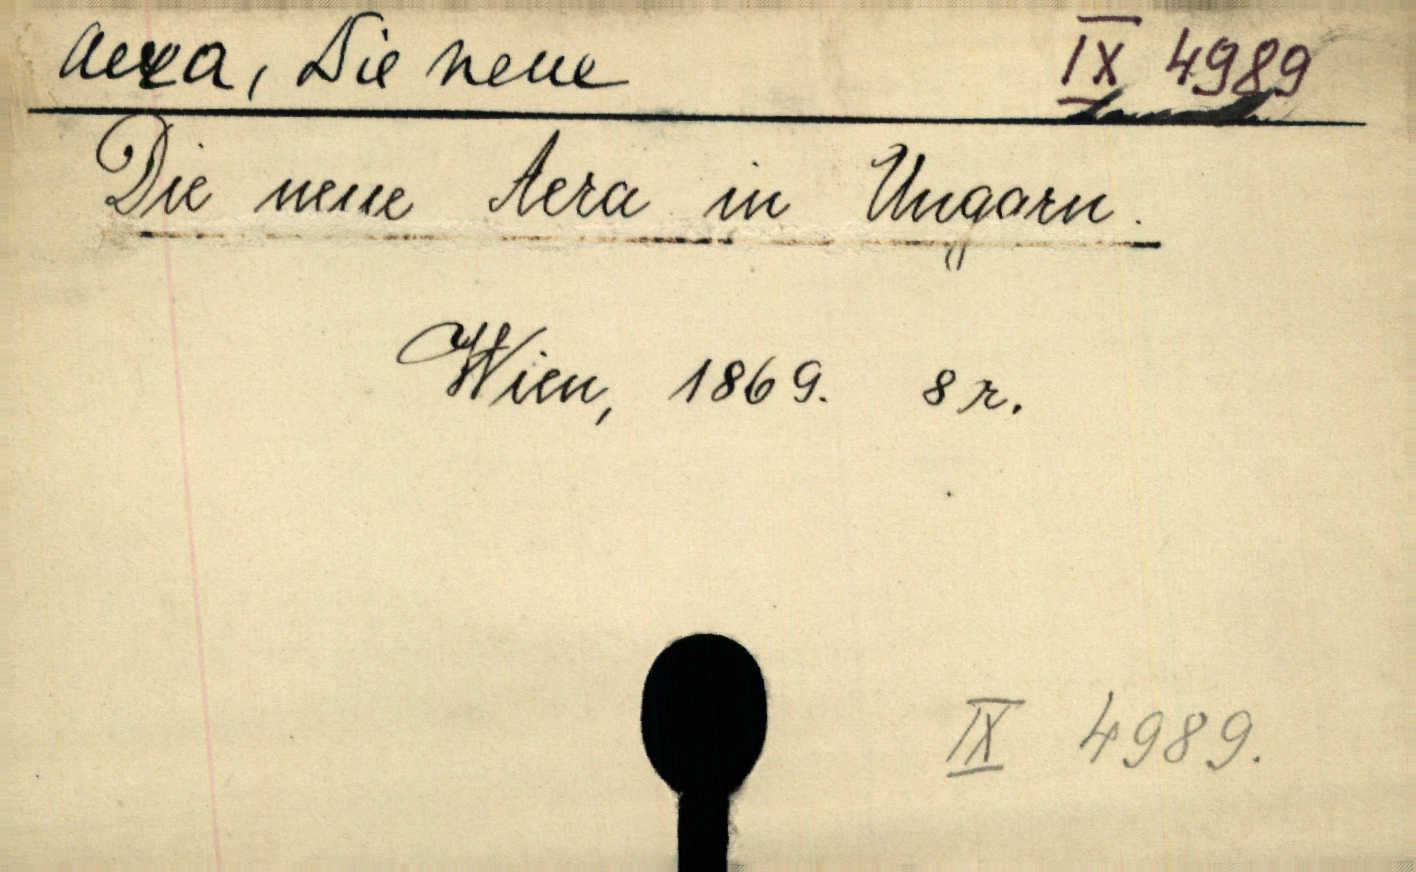 Aera, Die neue IX 4989
Die neue Aera in Ungarn.
Wien, 1869. 8 r.
IX 4989.